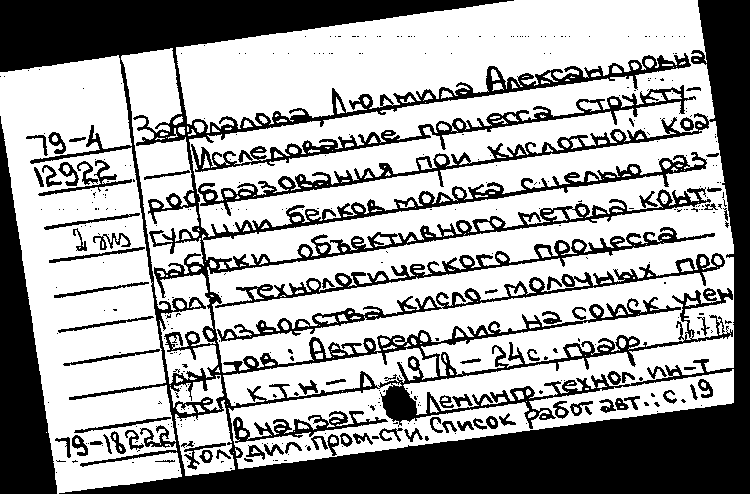 79-4
12922
2 экз
79-18222
Забодалова, Людмила Александровна
Исследование процесса структу-
рообразования при кислотной коа-
гуляции белков молока с целью раз-
работки объективного метода конт-
роля технологического процесса
производства кисло-молочных про-
дуктов: Автореф. дис. на соиск. учен
степ. к.т.н. - Л. 1978. - 24с.; граф.
В надзаг.: Ленингр. технол. ин-т
холодил. пром-сти. Список работ авт.: с. 19